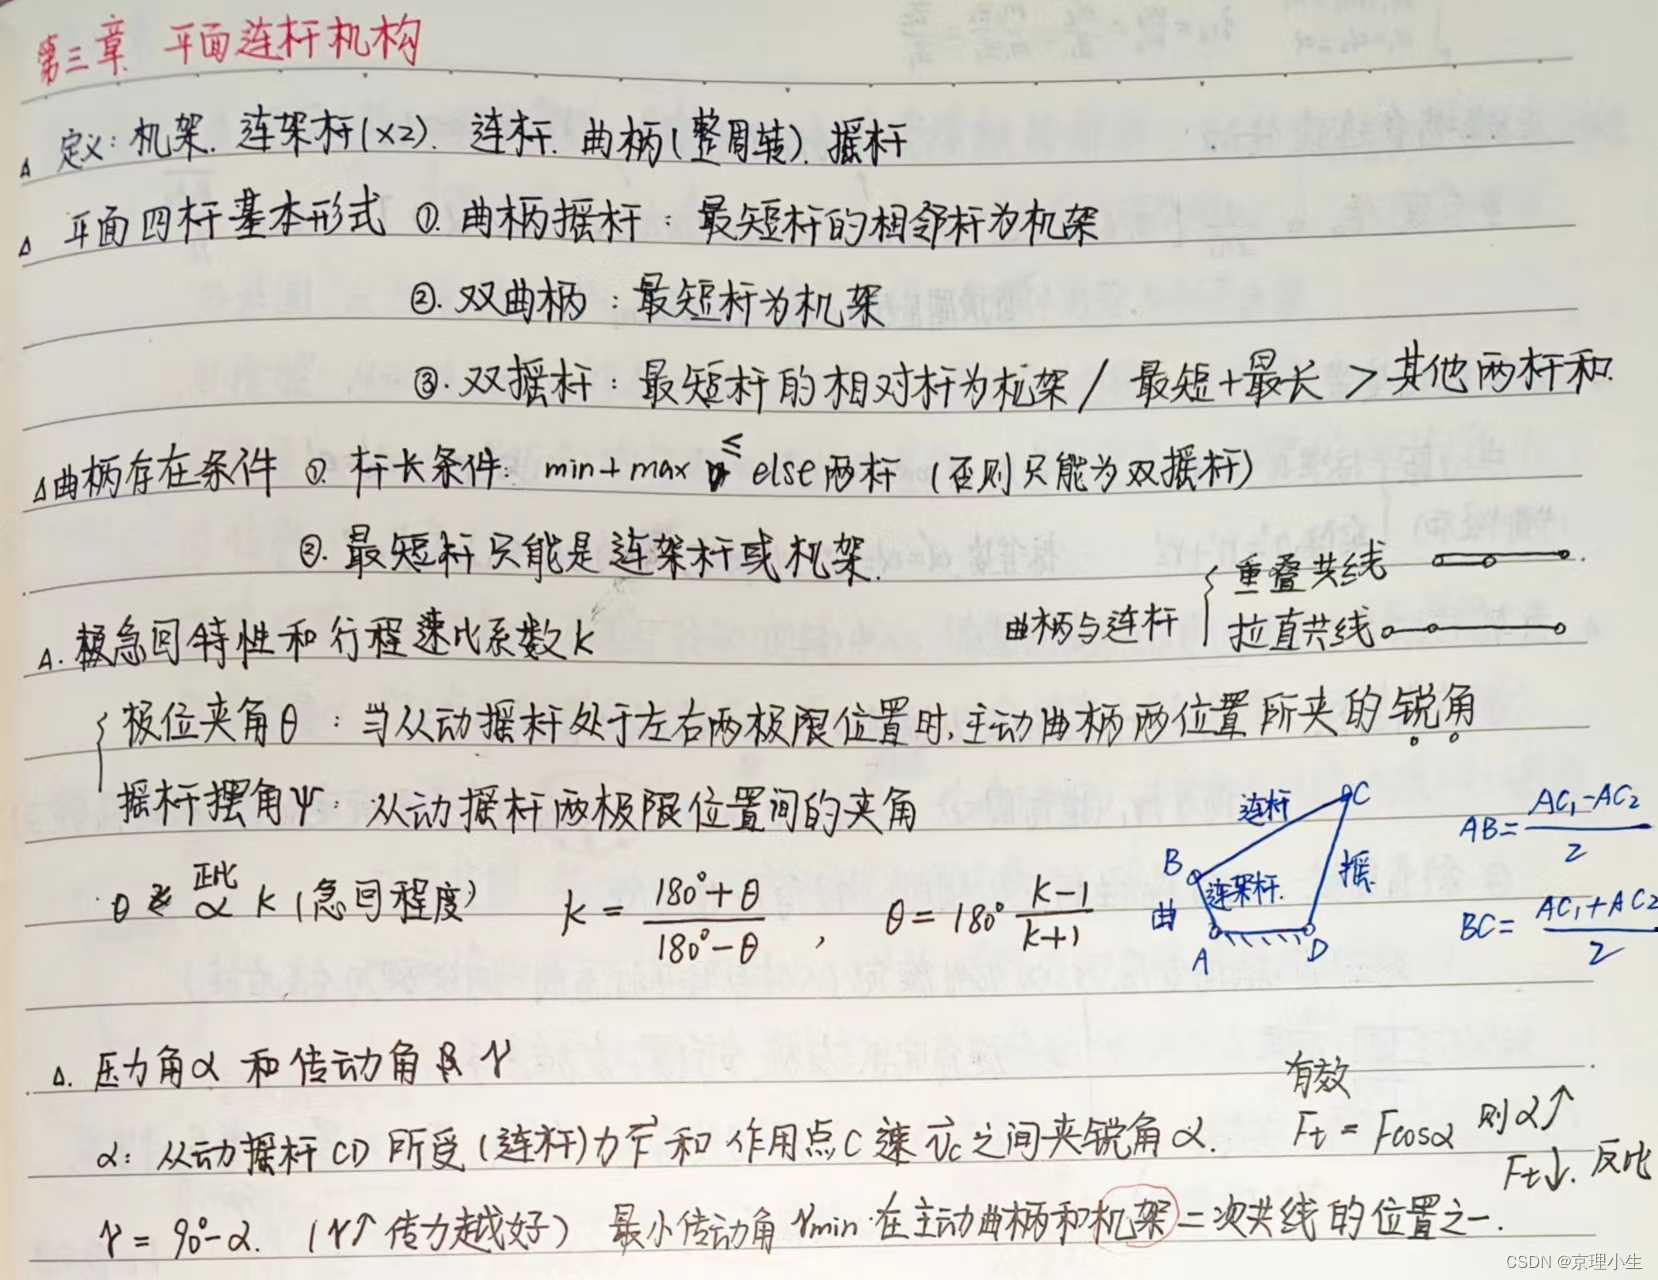 第三章 平面连杆机构
△ 定义: 机架. 连架杆(×2). 连杆. 曲柄(整周转). 摇杆
△ 平面四杆基本形式 ①. 曲柄摇杆: 最短杆的相邻杆为机架
②. 双曲柄: 最短杆为机架
③. 双摇杆: 最短杆的相对杆为机架 / 最短+最长 > 其他两杆和.
△曲柄存在条件 ①. 杆长条件: min+max ≤ else两杆 (否则只能为双摇杆)
②. 最短杆只能是连架杆或机架.
曲柄与连杆 { 重叠共线
拉直共线
△. 急回特性和行程速比系数K
{ 极位夹角θ: 当从动摇杆处于左右两极限位置时,主动曲柄两位置所夹的锐角
摇杆摆角ψ: 从动摇杆两极限位置间的夹角
θ 正比 ∝ K (急回程度) K = (180°+θ)/(180°-θ), θ = 180° (K-1)/(K+1)
连杆 C
B 连架杆. 摇.
曲 A D
AB = (AC₁-AC₂)/2
BC = (AC₁+AC₂)/2
△. 压力角α 和传动角 γ
α: 从动摇杆CD所受(连杆)力F和作用点C速v_c之间夹锐角α.
有效
Ft = Fcosα 则α↑
Ft↓. 反比
γ = 90°-α. (γ↑ 传力越好) 最小传动角γmin 在主动曲柄和机架二次共线的位置之一.
CSDN @京理小生